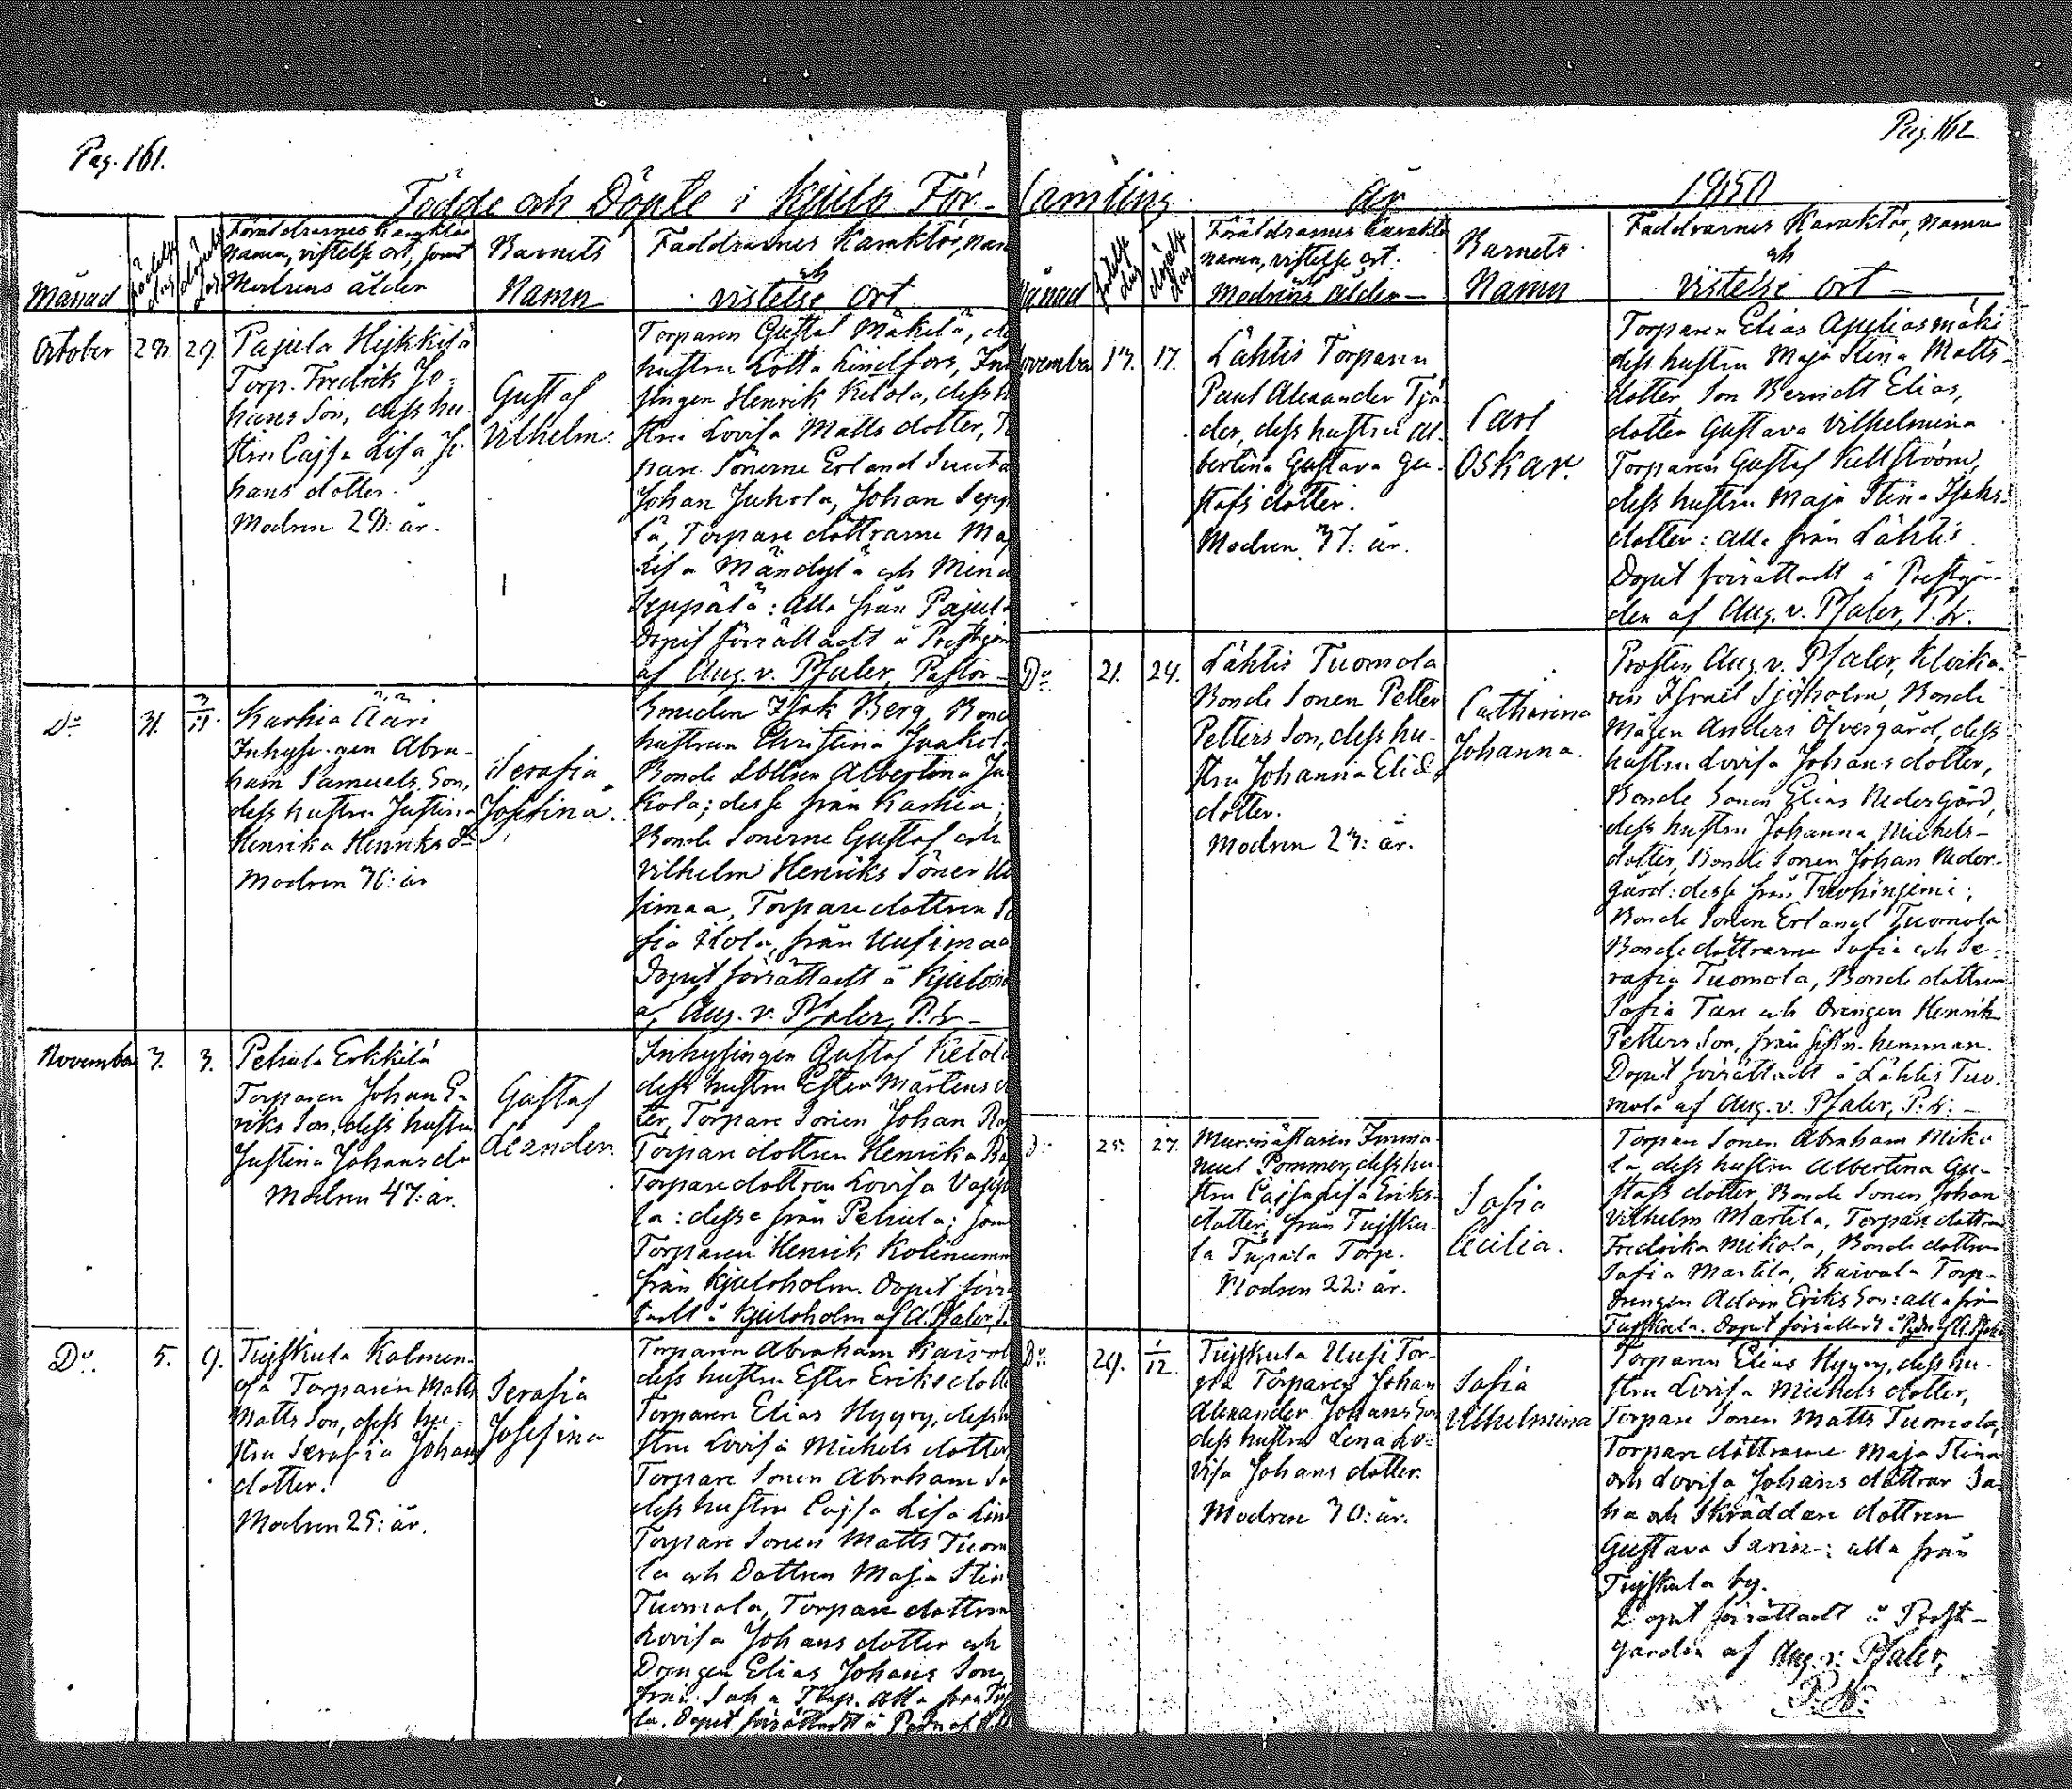 Pag. 161.
Födde och Döpte i Kjulo För-
Månad
födelse dag
döpelse dag
Föräldrarnes Karaktär
Namn, vistelse ort, samt
Modrens ålder
Barnets
Namn
Faddrarnes Karaktär, Nam
och
vistelse ort
October
28.
29.
Pajula Hejkkilä
Torp. Fredrik Jo-
hans Son, dess hu
stru Cajsa Lisa Jo
hans dotter.
Modren 28: år.
Gustaf
Vilhelm.
Torparen Gustaf Mäkilä, de
hustru Lotta Lindfors, Inh
singen Henrik Ketola, dess h
stru Lovisa Matts dotter, T
pare Sönerne Erland Junta
Johan Juhola, Johan Sepp
lä, Torpare döttrarne Maj
Lisa Mändylä och Mina
Seppälä: alla från Pajula
Dopet förrättadt å Prestgår
af Aug. v. Pfaler, Pastor –
Do
31.
3/11.
Karhia Ääri
Inhyse-gen Abra-
ham Samuels Son,
dess hustru Justina
Henrika Henriks dr
Modren 36: år
Serafia
Josefina.
Bonden Isak Berg, Bond
hustrun Christina Jaakol
Bonde dottren Albertina Ja
kola; desse från Karhia;
Bonde Sönerne Gustaf och
Vilhelm Henriks Söner Uu
simaa, Torpare dottren So
fia Ilola, från Uusimaa
Dopet förrättadt å Kjuloho
af Aug. v. Pfaler, P. Lr –
November
3.
3.
Pehula Erkkilä
Torparen Johan E-
riks Son, dess hustru
Justina Johans dr
Modren 43: år.
Gustaf
Lexander.
Inhysingen Gustaf Ketola
dess hustru Ester Mårtens d
ter, Torpare Sonen Johan Ra
Torpare dottren Henrika Ra
Torpare dottren Lovisa
la: desse från Pehula; samt
Torparen Henrik
från Kjuloholm. Dopet förr
tadt å Kjuloholm af A. Pfaler, P.
Do.
5.
9.
Tujskula Kalmen-
oja Torparen Matts
Matts Son, dess hu-
stru Serafia Johans
dotter.
Modren 25: år.
Serafia
Josefina
Torparen Abraham Kaivol
dess hustru Ester Eriks dott
Torparen Elias Hyyry, dess h
stru Lovisa Michels dotter,
Torpare Sonen Abraham Sa
dess hustru Cajsa Lisa Lin
Torpare Sonen Matts Tuom
la och Dottren Maja Stin
Tuomola, Torpare dottren
Lovisa Johans dotter och
Drengen Elias Johans Son,
från Saha Torp. Alla från Tuj
la. Dopet förrättadt å
Pag. 162.
samling år 1850
Månad
födelse dag
döpelse dag
Föräldrarnes Karaktär
namn, vistelse ort.
Modrens ålder –
Barnets
Namn
Faddrarnes Karaktär, Namn
och
vistelse ort –
November
13.
17.
Lähtis Torparen
Paul Alexander Tjä-
der, dess hustru Al-
bertina Gustava Gu-
stafs dotter.
Modren 37: år.
Carl
Oskar.
Torparen Elias Apeliasmäki
dess hustru Maja Stina Matts-
dotter, Son Berndt Elias,
dotter Gustava Vilhelmina
Torparen Gustaf Kellström,
dess hustru Maja Stina Isaks-
dotter: alla från Lähtis.
Dopet förrättadt å Prestgår-
den af Aug. v. Pfaler, P. Lr.
Do
21.
24.
Lähtis Tuomola
Bonde Sonen Petter
Petters Son, dess hu-
stru Johanna Elias
dotter.
Modren 23: år.
Catharina
Johanna.
Prosten Aug. v. Pfaler, Klocka-
ren Israel Sjöholm, Bonde
Mågen Anders Öfvergård, dess
hustru Lovisa Johans dotter,
Bonde Sonen Elias Nedergård,
dess hustru Johanna Michels-
dotter, Bonde Sonen Johan Neder-
gård: desse från Tuohiniemi;
Bonde Sonen Erland Tuomola
Bonde döttrarne Sofia och Se-
rafia Tuomola, Bonde dottren
Sofia Tare och Drengen Henrik
Petters Son, från sistn. hemman.
Dopet förrättadt å Lähtis Tuo-
mola af Aug. v. Pfaler, P. Lr. –
Do
25.
27.
Murmästaren Imma-
nuel Pommer, dess hu-
stru Cajsa Lisa Eriks-
dotter, från Tujsku-
la Tupala Torp.
Modren 22: år.
Sofia
Cecilia.
Torpare Sonen Abraham Miko
la, dess hustru Albertina Gu-
stafs dotter, Bonde Sonen Johan
Vilhelm Martila, Torpare dottren
Fredrika Mikola, Bonde dottren
Sofia Martila, Kaivola Torp-
Drengen Adam Eriks Son: alla från
Tujskula. Dopet förrättadt å
Do
29.
1/12.
Tujskula Uusi Tor-
pa Torparen Johan
Alexander Johans Son
dess hustru Lena Lo-
visa Johans dotter.
Modren 30: år.
Sofia
Vilhelmina
Torparen Elias Hyyry, dess hu-
stru Lovisa Michels dotter,
Torpare Sonen Matts Tuomola,
Torpare döttrarne Maja Stina
och Lovisa Johans döttrar Sa-
ha och Skräddare dottren
Gustava Sarin: alla från
Tujskula by.
Dopet förrättadt å Prest-
gården af Aug. v. Pfaler,
P. Lr.